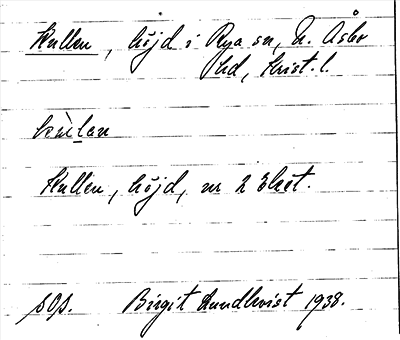 Kullen, höjd i Rya sn, N. Åsbo
hd, Krist. l.
Kullen, höjd, nr 2 Ekét.
sOp. Birgit Lundkvist 1938.